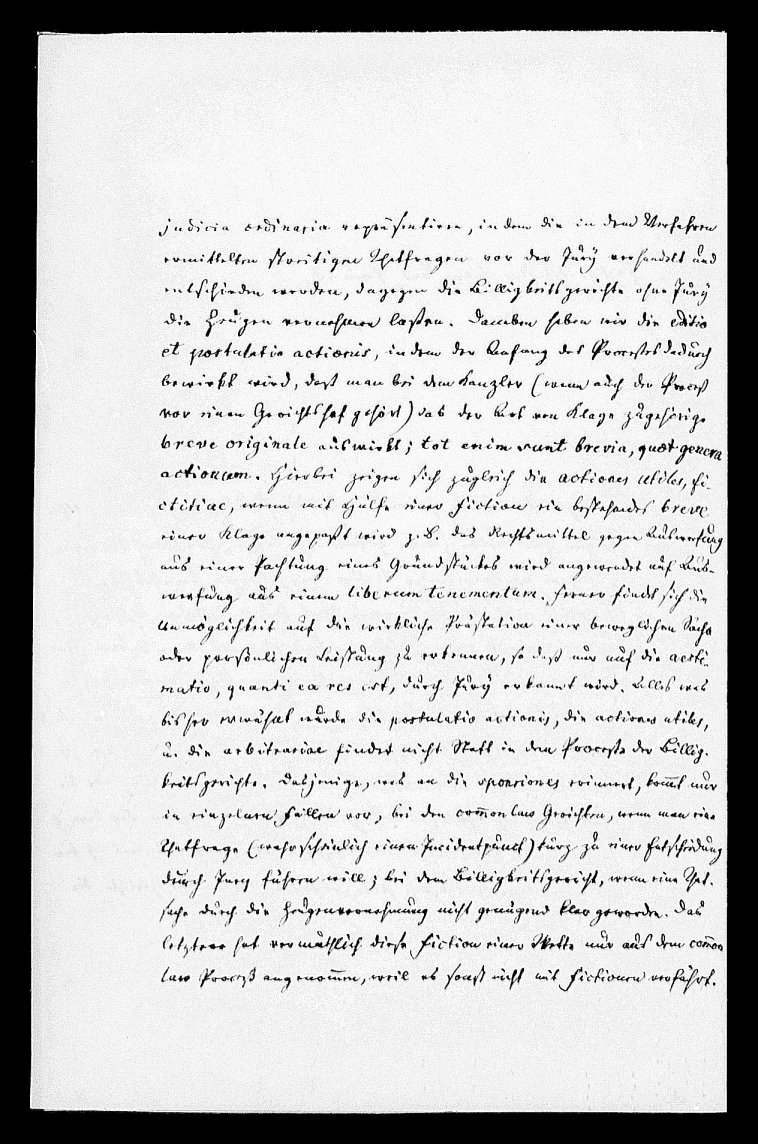 judicia ordinaria repräsentiren, in dem die in dem Verfahren
ermittelten streitigen Thatfragen vor der Jury verhandelt und
entschieden werden, dagegen die Billigkeitsgerichte ohne Jury
die Zeugen vernehmen lassen. Daneben haben wir die editio
et postulatio actionis, in dem der Anfang des Processes dadurch
bewirkt wird, daß man bei dem Kanzler (wenn auch der Proceß
vor einen Gerichtshof gehört) das der Art von Klage zugehörige
breve originale auswirkt; tot enim sunt brevia, quot genera
actionum. Hierbei zeigen sich zugleich die actiones utiles, fi-
ctitiae, wenn mit Hülfe einer Fiction ein bestehendes breve
einer Klage angepaßt wird z.B. das Rechtsmittel gegen Auswerfung
aus einer Pachtung eines Grundstückes wird angewendet auf Aus-
werfung aus einem liberum tenementum. Ferner findet sich die
Unmöglichkeit auf die wirkliche Prästation einer beweglichen Sache
oder persönlichen Leistung zu erkennen, so daß nur auf die aesti-
matio, quanti ea res est, durch Jury erkannt wird. Alles was
bisher erwähnt wurde die postulatio actionis, die actiones utiles,
u. die arbitrariae findet nicht Statt in dem Processe der Billig-
keitsgerichte. Dasjenige, was an die sponsiones erinnert, kom̅t nur
in einzelnen Fällen vor, bei den com̅on law Gerichten, wenn man eine
Thatfrage (wahrscheinlich einen Incidentpunct) kurz zu einer Entscheidung
durch Jury führen will; bei dem Billigkeitsgericht, wenn eine That-
sache durch die Zeugenvernehmung nicht genügend klar geworden. Das
letztere hat vermuthlich diese Fiction einer Wette nur aus dem com̅on
law Proceß angenom̅en, weil es sonst nicht mit Fictionen verfährt.